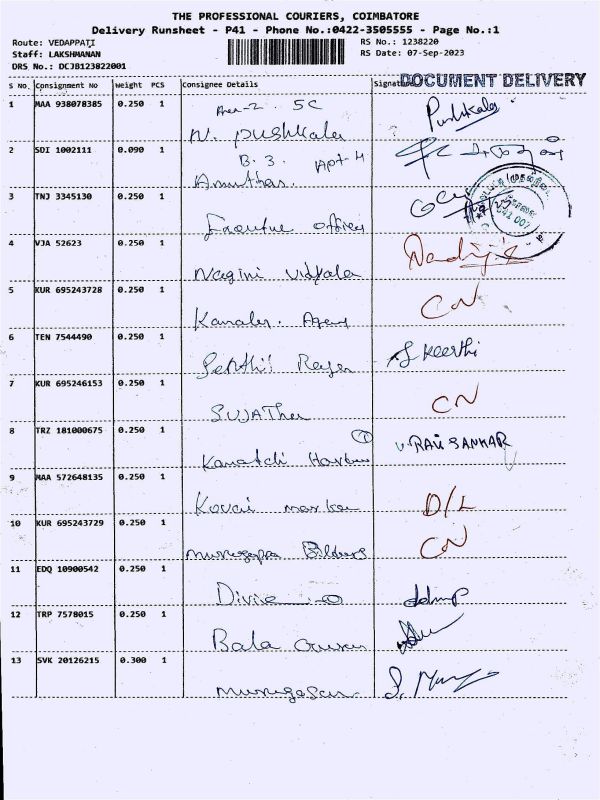 THE PROFESSIONAL COURIERS, COIMBATORE
Delivery Runsheet - P41 - Phone No.:0422-3505555 - Page No.:1
Route: VEDAPPATI RS No.: 1238220
Staff: LAKSHMANAN RS Date: 07-Sep-2023
DRS No.: DCJB123822001
S No. Consignment No Weight PCS Consignee Details Signature DOCUMENT DELIVERY
1 MAA 938078385 0.250 1 5C Pushkala
N. Pushkala
2 SDI 1002111 0.090 1 B. 3. Apt-4
Amuthas.
3 TNJ 3345130 0.250 1
Executive officer
4 VJA 52623 0.250 1
Nagini Vidyala
5 KUR 695243728 0.250 1 CN
6 TEN 7544490 0.250 1 J Keerthi
Senthil
7 KUR 695246153 0.250 1 CN
SUJATha
8 TRZ 181000675 0.250 1 1 V. RAVI SANKAR
9 MAA 572648135 0.250 1 D/L
Kovai
10 KUR 695243729 0.250 1 CN
11 EDQ 10900542 0.250 1
Divine
12 TRP 7578015 0.250 1
Bala
13 SVK 20126215 0.300 1
Murugesan